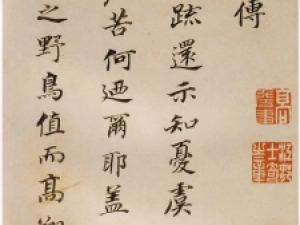 傳
疏還示知憂虞
苦何迺爾耶盖
之野鳥值而高